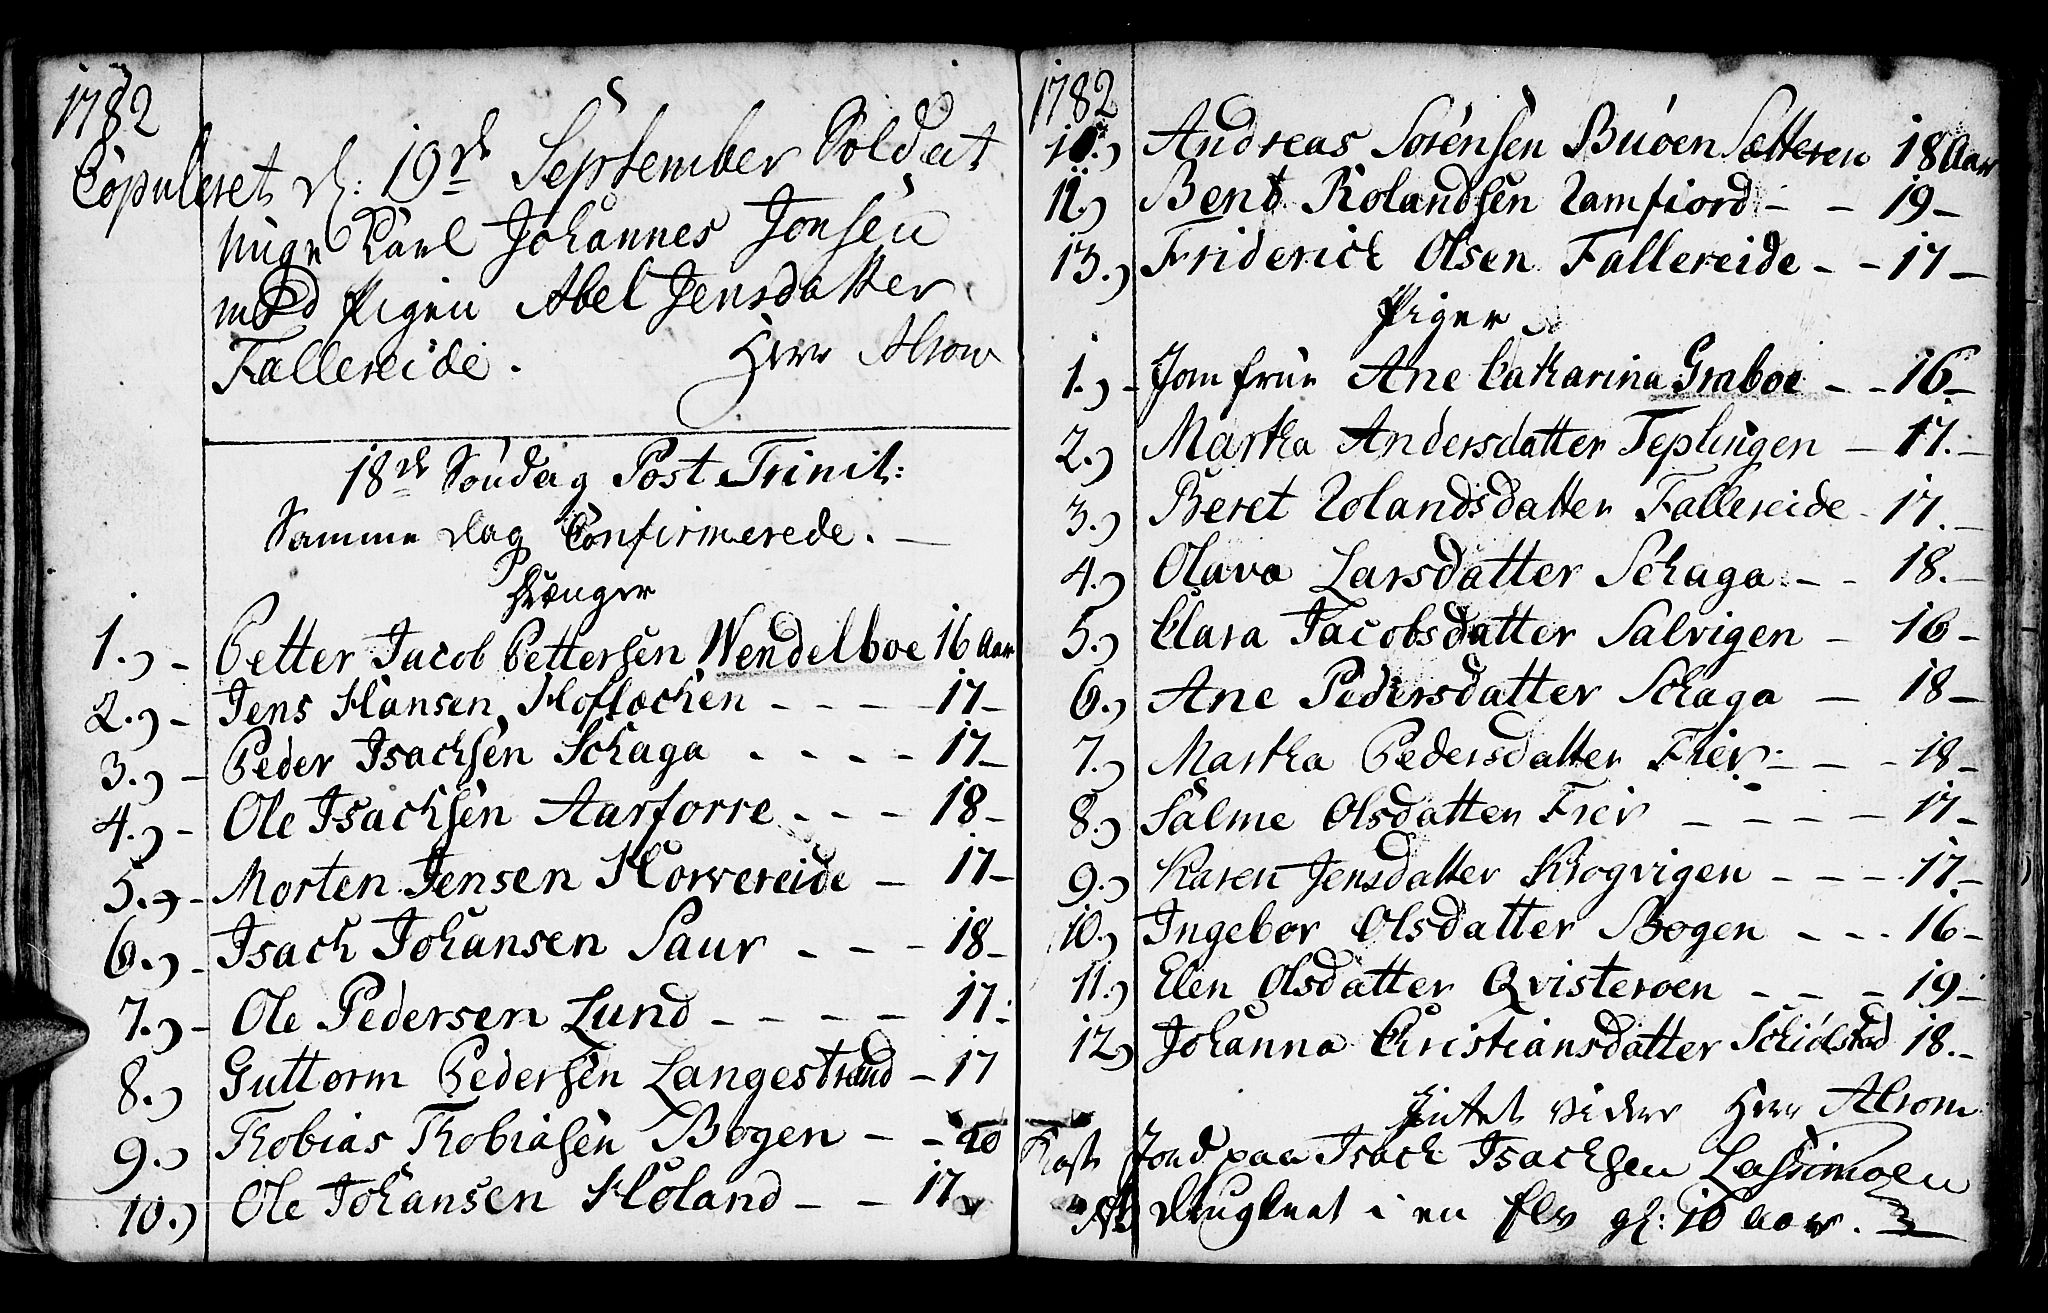 1782
Copuleret d: 19de September Soldat
unge Karl Johannes Jonsen
med Pigen Abel Jensdatter
Fallereide. Herr Alrom
18de Søndag Post Trinit:
Samme Dag Confirmerede. —
Drænger
1.) - Petter Jacob Pettersen Wendelboe 16 Aar
2.) - Jens Hansen Hoflochen - - - - 17 -
3.) - Peder Isachsen Schaga - - - - 17 -
4.) - Ole Isachsen Aarforre - - - 18 -
5.) - Morten Jensen Horvereide - 17 -
6.) - Isach Johansen Saur - - - 18 -
7.) - Ole Pedersen Lund - - - - - 17 -
8.) Guttorm Pedersen Langestrand - 17
9.) Thobias Thobiasen Bogen - - 20
10.) Ole Johansen Høland - - 17
1782
Andreas Sørensen Buøen Sætteren 18 Aar
Bent Rolandsen Ramfiord - - 19 -
13.) Friderich Olsen Fallereide - - 17 -
Piger
1.) - Jomfrue Ane Catharina Graboe - - 16 -
2.) Martha Andersdatter Teplingen - 17. -
3.) Beret Rolandsdatter Fallereide - 17. -
4.) Olava Larsdatter Schaga - - 18. -
5.) Clara Jacobsdatter Salvigen - 16 -
6.) Ane Pedersdatter Schaga - 18 -
7.) Martha Pedersdatter Fier - - - 18 -
8.) Salme Olsdatter Fier - - - - - 17 -
9.) Karen Jensdatter Krogvigen - - - - 17 -
10.) Ingebor Olsdatter Bogen - - - 16 -
11.) Elen Olsdatter Qvisteroen - - - 19 -
12) Johanna Christiansdatter Schiølstad 18. -
Intet vider Herr Alrom
Kast Jord paa Isach Isachsen Lassimoen
druglnet i en Elv gl: 16 Aar.